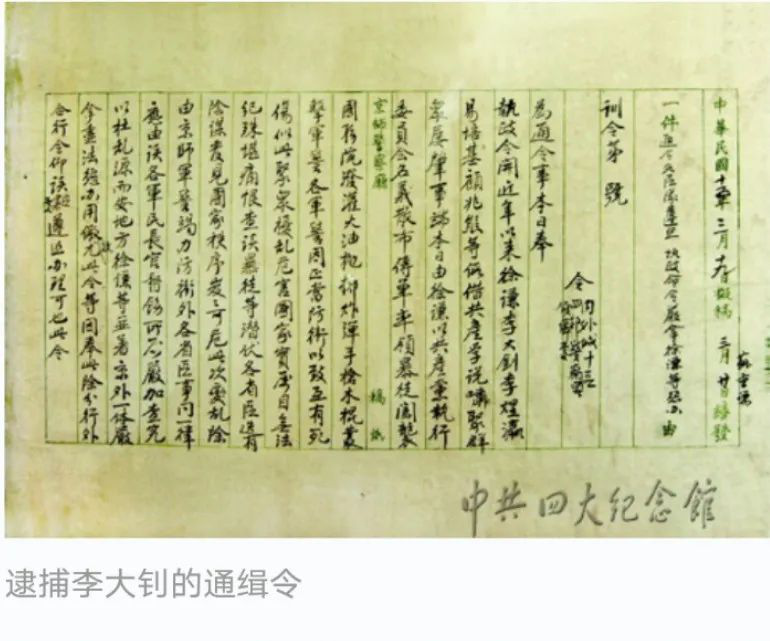 中華民國十五年三月十九日擬稿 三月廿日繕發
一件通令各區隊遵照 執政命令嚴拿徐謙等懲办由
訓令第 號
令
為通令事本日奉
執政令開近年以來徐謙李大釗李煜瀛
易培基顧兆熊等假借共產學說嘯聚群
眾屢肇事端本日由徐謙以共產黨執行
委員會名義散布傳單率領暴徒闖襲
京師警察廳 稿紙
國務院潑灌火油拋擲炸彈手槍木棍叢
擊軍警各軍警因正當防衛以致互有死
傷似此聚眾擾亂危害國家實屬目無法
紀殊堪痛恨查該暴徒等潛伏各省區迭有
陰謀發見國家秩序岌岌可危此次變亂除
由京師軍警竭力防衛外各省區事同一律
應由該各軍民長官督飭所屬嚴加查究
以杜亂源而安地方徐謙等並著京外一體嚴
拿盡法懲办用儆尤此令等因奉此除分行外
合行令仰該 遵照办理可也此令
中共四大纪念館
逮捕李大钊的通缉令